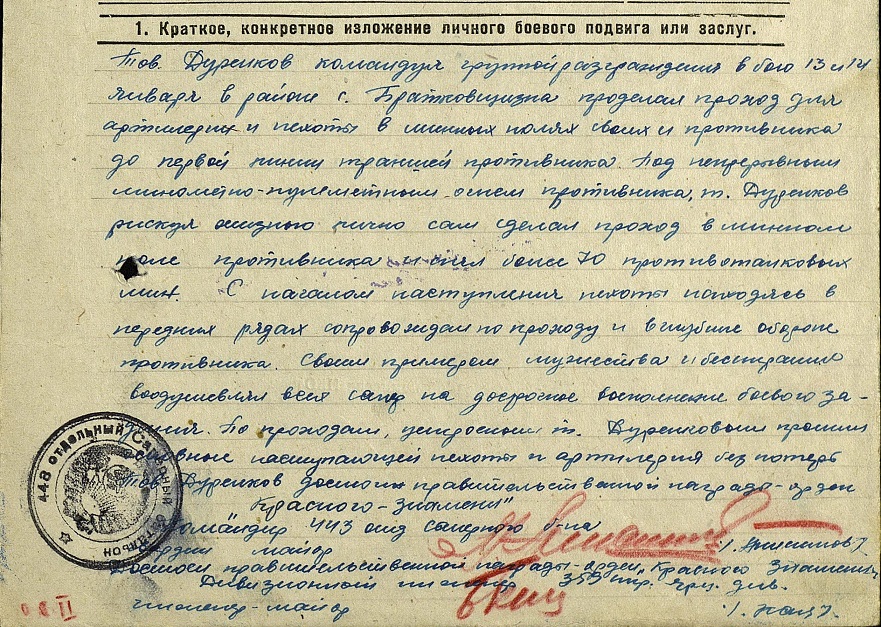 1. Краткое, конкретное изложение личного боевого подвига или заслуг.
Тов. Дуренков командуя группой разграждения в бою 13 и 14
января в районе с. Братковщизна проделал проход для
артилерии и пехоты в минных полях своих и противника
до первой линии траншей противника. Под непрерывным
минометно-пулеметным огнем противника, т. Дуренков
рискуя жизнью лично сам сделал проход в минном
поле противника и снял более 70 противотанковых
мин. С началом наступления пехоты находясь в
передних рядах сопровождал по проходу и в глубине обороне
противника. Своим примером мужества и бесстрашия
воодушевлял всех сапер на досрочное выполнение боевого за-
дания. По проходам, т. Дуренковым прошли
наступающей пехоты и артилерия без потерь
Тов. Дуренков достоин правительственной награды-орден
Красного-Знамени"
Командир отд саперного б-на
майор /. Анисимов /.
Достоин правительственной награды-орден „Красного Знамени"
Дивизионный инженер 359 стр. див.
инженер-майор /. Кац /.
448 отдельный Саперный батальон